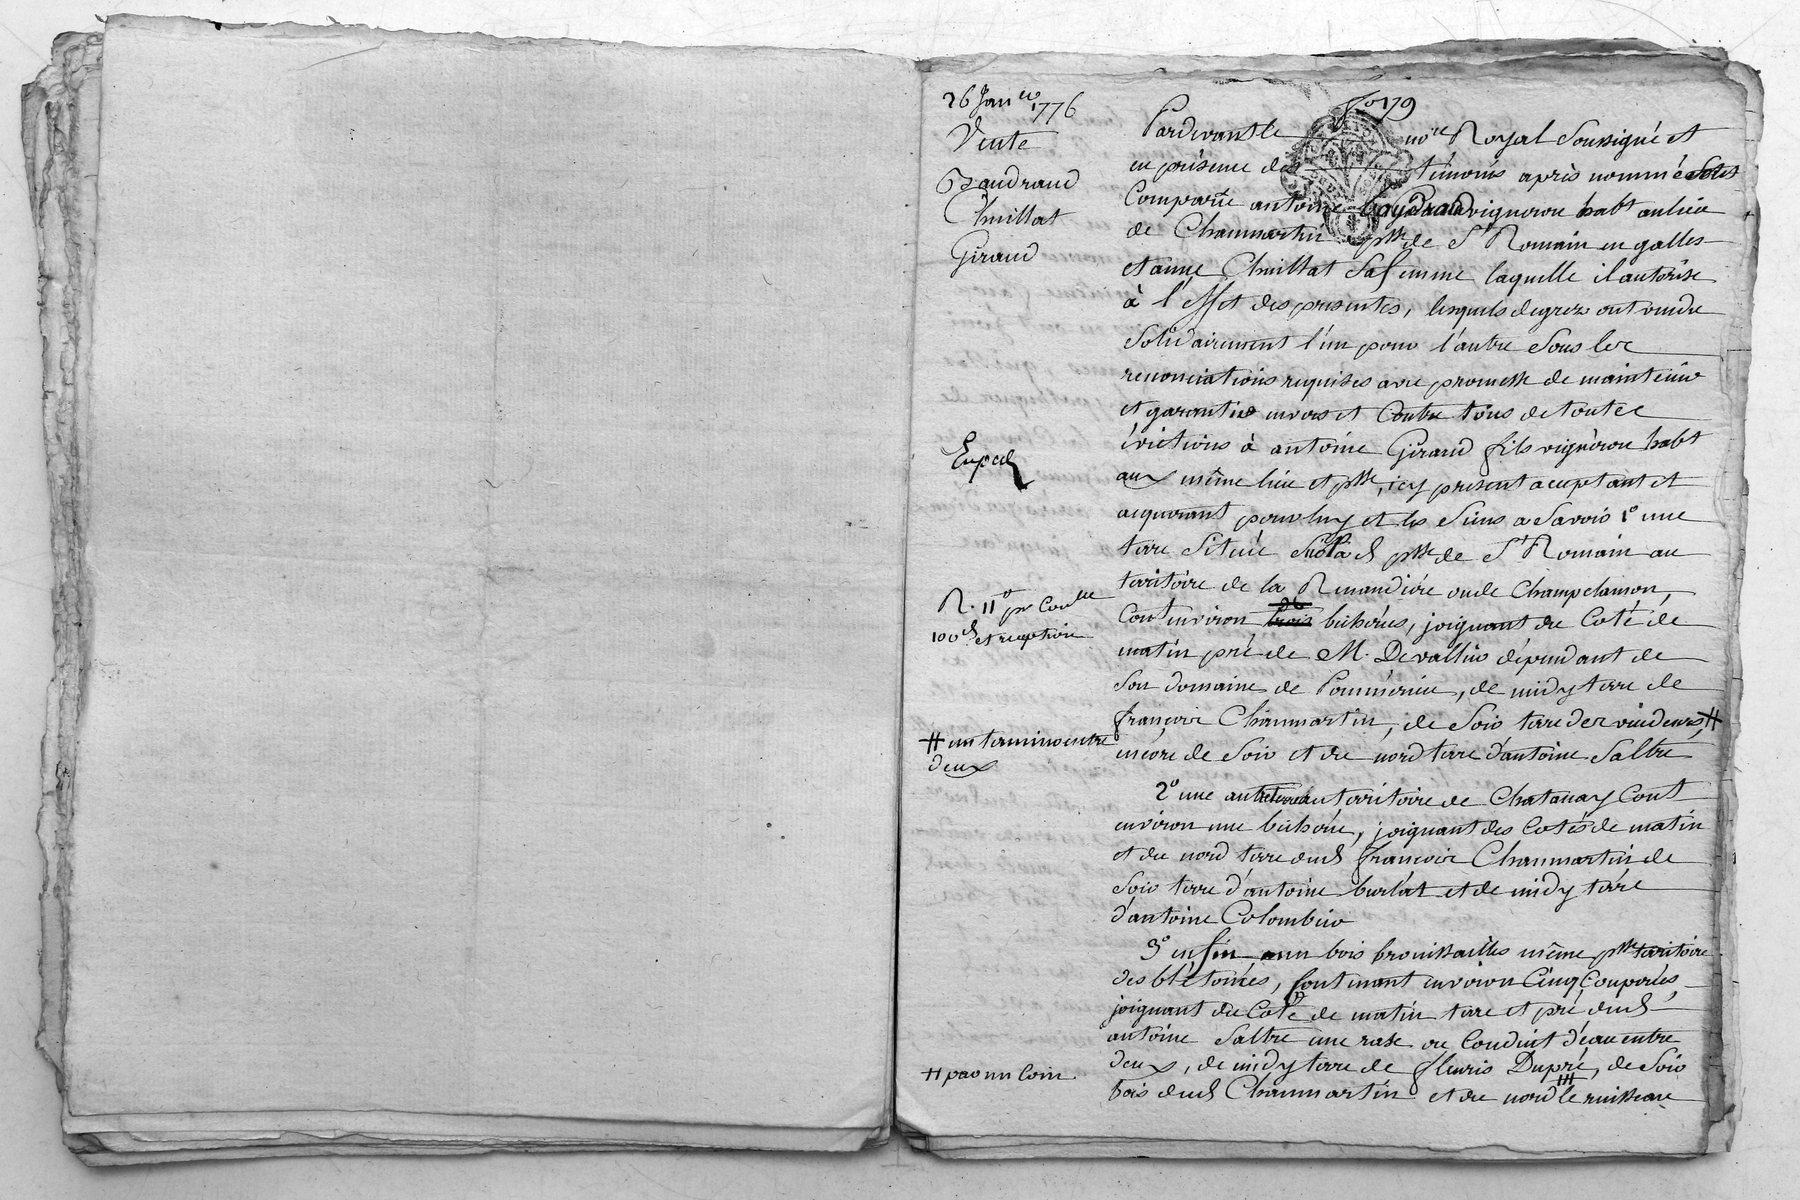 26 Janer 1776
Vente
Baudrand
Chuillat
Giraud
Exped
R. 11# pr Conlle
100e et reception
# un termino entre
deux
# par un Coin
fo 179
Pardevant le nore Royal Soussigné et
en présence des témoins après nommés
Comparût antoine Baudrand vigneron habt au lieu
de Chanmartin psse de St Romain en galles
et anne Chuillat Sa femme laquelle il autorise
à l'effet des presentes, lesquels de grez ont vendu
Solidairement l'un pour l'autre Sous les
renonciations requises avec promesse de maintenir
et garantir envers et Contre tous de toutes
évictions à antoine Giraud fils vigneron habt
aux même lieu et psse, icy present acceptant et
acquerant pour luy et les Siens a Savoir 1o une
terre Située Sur lad psse de St Romain au
territoire de la Renaudiére ou de Champclanson,
Cont environ bichérés, joignant du Coté de
matin pré de M. Devallin dépendant de
Son domaine de Pommérieu, de midy terre de
françois Chanmartin, de Soir terre des vendeurs, #
encore de Soir et du nord terre d'antoine Saltre
2o une autre terre au territoire de Chatanay Cont
environ une bicherée, joignant des Cotés de matin
et du nord terre dud françois Chanmartin de
Soir terre d'antoine burlat et de midy terre
d'antoine Colombier
3o enfin un bois broussailles même psse territoire
des blétonées, Contenant environ Cinq Couporées
joignant du Coté de matin terre et pré dud
antoine Saltre une rase ou Conduit d'eau entre
deux, de midy terre de fleuris Dupré, de Soir
bois dud Chanmartin et du nord le ruisseau